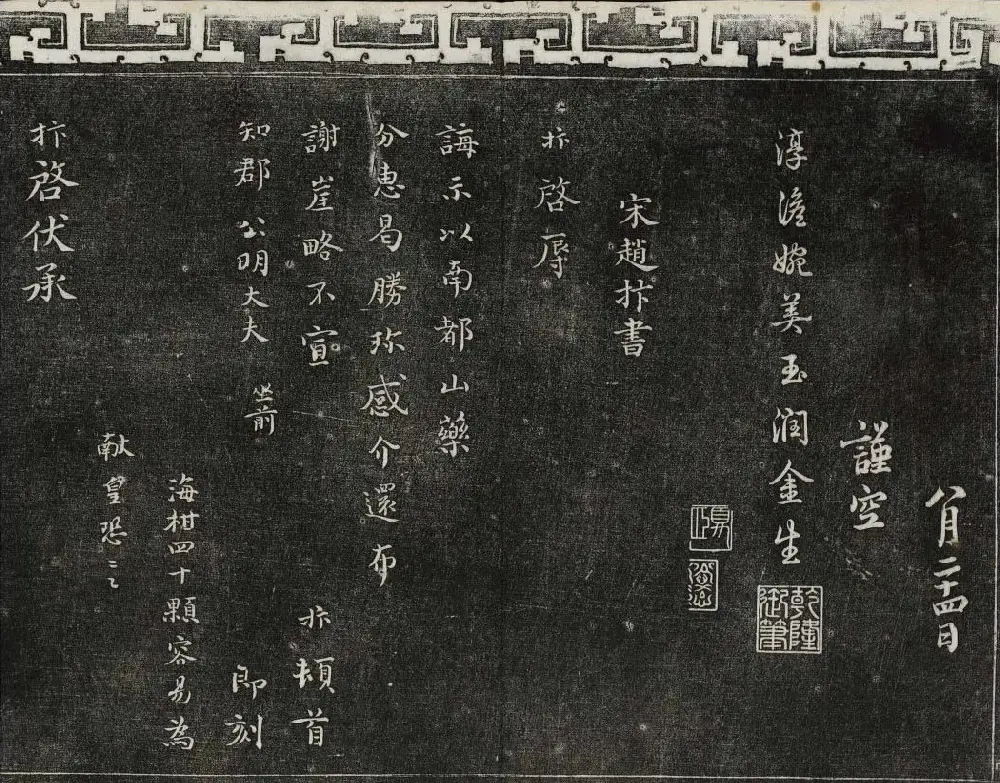 八月二十四日
謹空
淳澹婉美玉润金生
乾隆御筆
宋趙抃書
抃啓辱
誨示以南都山藥
分惠曷勝珍感介還布
謝崖略不宣 抃頓首
知郡公明大夫 坐前 即刻
海柑四十顆容易為
献皇恐〻
抃啓伏承